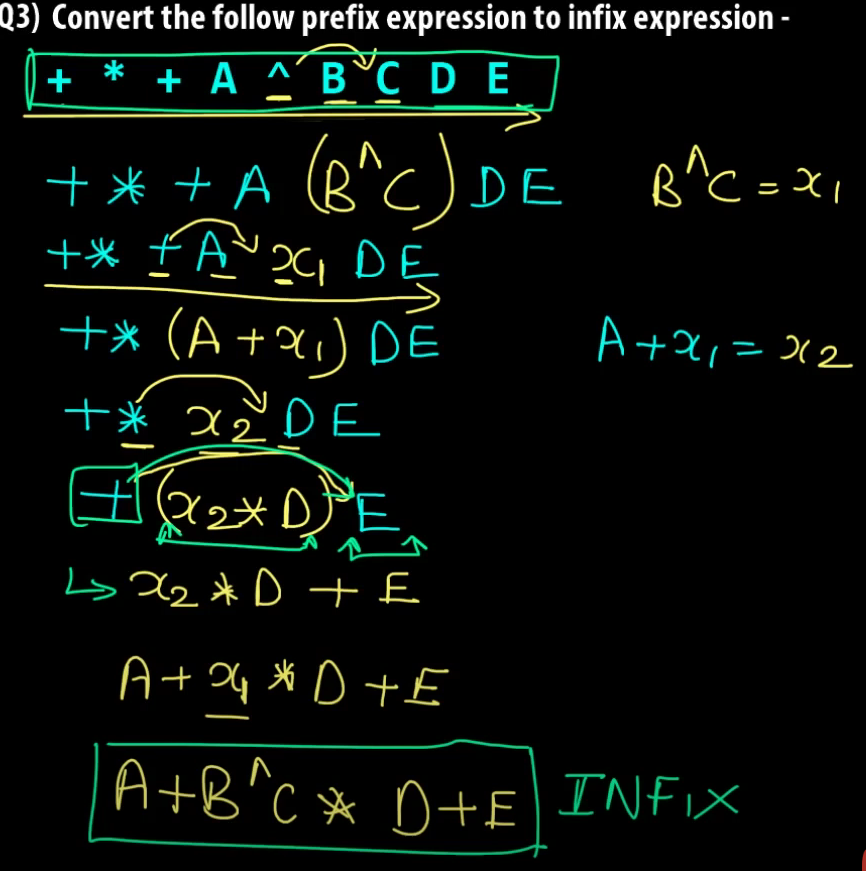 Q3) Convert the follow prefix expression to infix expression -
+ * + A ^ B C D E
+ * + A (B^C) D E    B^C = x1
+* + A x1 D E
+* (A + x1) D E    A + x1 = x2
+* x2 D E
+ (x2 * D) E
↳ x2 * D + E
A + x1 * D + E
A+B^C * D+E INFIX